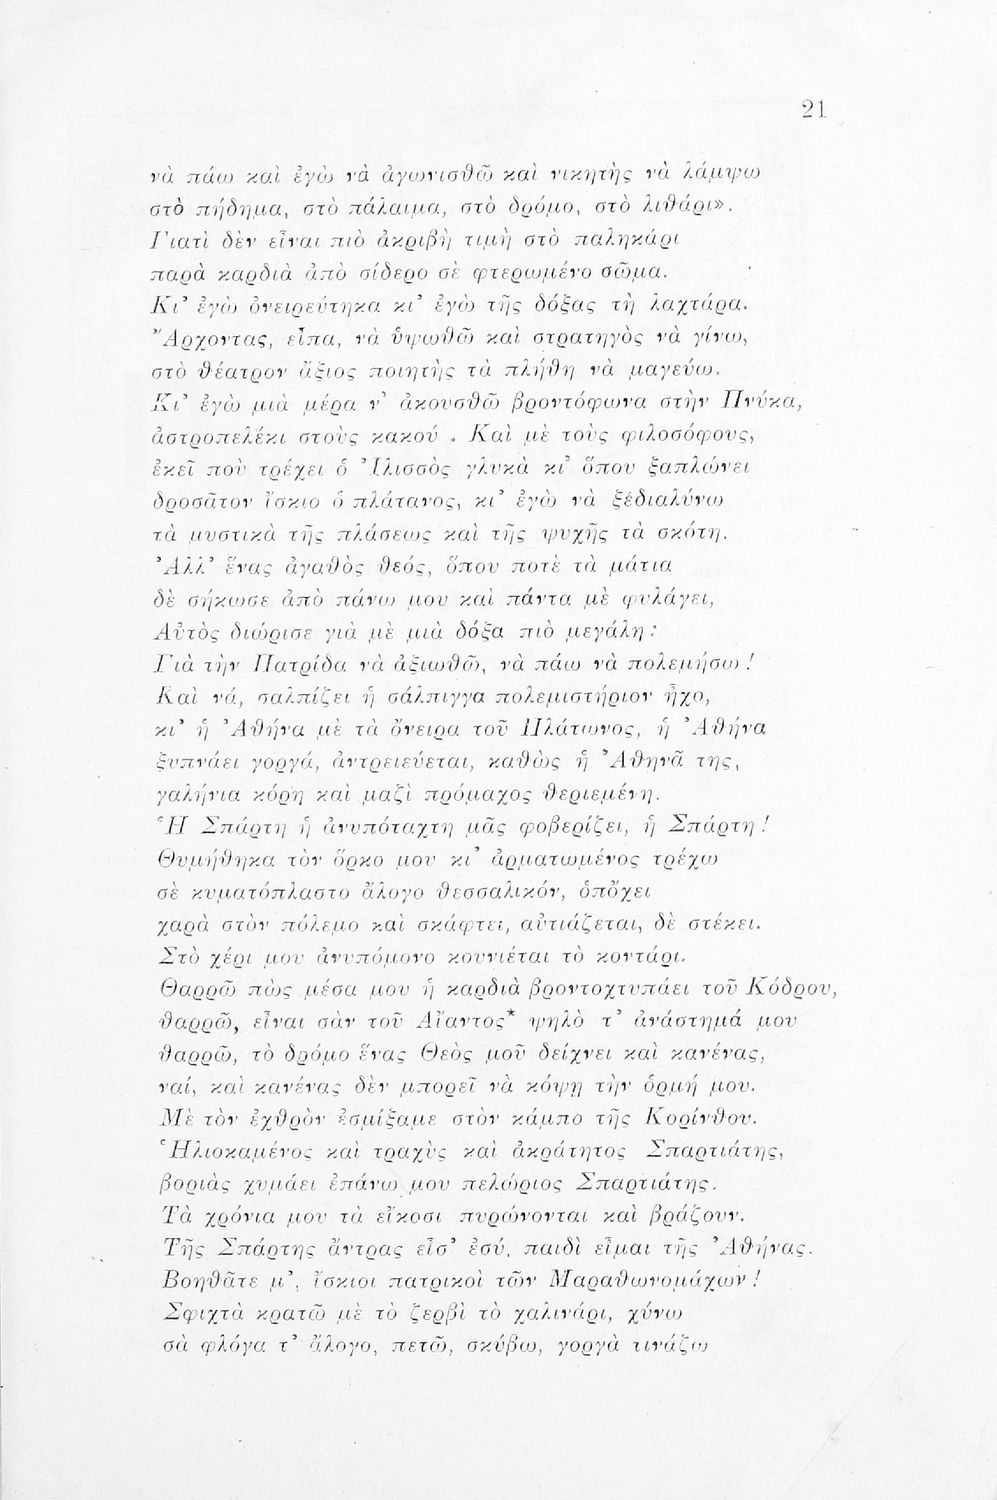 21
νὰ πάω καὶ ἐγὼ νὰ ἀγωνισθῶ καὶ νικητὴς νὰ λάμψω
στὸ πήδημα, στὸ πάλαιμα, στὸ δρόμο, στὸ λιθάρι».
Γιατὶ δὲν εἶναι πιὸ ἀκριβὴ τιμὴ στὸ παληκάρι
παρὰ καρδιὰ ἀπὸ σίδερο σὲ φτερωμένο σῶμα.
Κι᾿ ἐγὼ ὀνειρεύτηκα κι᾿ ἐγὼ τῆς δόξας τὴ λαχτάρα.
Ἄρχοντας, εἶπα, νὰ ὑψωθῶ καὶ στρατηγὸς νὰ γίνω,
στὸ θέατρον ἄξιος ποιητὴς τὰ πλήθη νὰ μαγεύω.
Κι᾿ ἐγὼ μιὰ μέρα ν᾿ ἀκουσθῶ βροντόφωνα στὴν Πνύκα,
ἀστροπελέκι στοὺς κακού . Καὶ μὲ τοὺς φιλοσόφους,
ἐκεῖ ποὺ τρέχει ὁ Ἰλισσὸς γλυκὰ κι᾿ ὅπου ξαπλώνει
δροσᾶτον ἴσκιο ὁ πλάτανος, κι᾿ ἐγὼ νὰ ξεδιαλύνω
τὰ μυστικὰ τῆς πλάσεως καὶ τῆς ψυχῆς τὰ σκότη.
Ἀλλ᾿ ἕνας ἀγαθὸς θεός, ὅπου ποτὲ τὰ μάτια
δὲ σήκωσε ἀπὸ πάνω μου καὶ πάντα μὲ φυλάγει,
Αὐτὸς διώρισε γιὰ μὲ μιὰ δόξα πιὸ μεγάλη:
Γιὰ τὴν Πατρίδα νὰ ἀξιωθῶ, νὰ πάω νὰ πολεμήσω!
Καὶ νά, σαλπίζει ἡ σάλπιγγα πολεμιστήριον ἦχο,
κι᾿ ἡ Ἀθήνα μὲ τὰ ὄνειρα τοῦ Πλάτωνος, ἡ Ἀθήνα
ξυπνάει γοργά, ἀντρειεύεται, καθὼς ἡ Ἀθηνᾶ της,
γαλήνια κόρη καὶ μαζὶ πρόμαχος θεριεμένη.
Ἡ Σπάρτη ἡ ἀνυπόταχτη μᾶς φοβερίζει, ἡ Σπάρτη!
Θυμήθηκα τὸν ὅρκο μου κι᾿ ἁρματωμένος τρέχω
σὲ κυματόπλαστο ἄλογο θεσσαλικόν, ὁπὄχει
χαρὰ στὸν πόλεμο καὶ σκάφτει, αὐτιάζεται, δὲ στέκει.
Στὸ χέρι μου ἀνυπόμονο κουνιέται τὸ κοντάρι.
Θαρρῶ πὼς μέσα μου ἡ καρδιὰ βροντοχτυπάει τοῦ Κόδρου,
θαρρῶ, εἶναι σὰν τοῦ Αἴαντος* ψηλὸ τ᾿ ἀνάστημά μου
θαρρῶ, τὸ δρόμο ἕνας Θεὸς μοῦ δείχνει καὶ κανένας,
ναί, καὶ κανένας δὲν μπορεῖ νὰ κόψῃ τὴν ὁρμή μου.
Μὲ τὸν ἐχθρὸν ἐσμίξαμε στὸν κάμπο τῆς Κορίνθου.
Ἡλιοκαμένος καὶ τραχὺς καὶ ἀκράτητος Σπαρτιάτης,
βοριὰς χυμάει ἐπάνω μου πελώριος Σπαρτιάτης.
Τὰ χρόνια μου τὰ εἴκοσι πυρώνονται καὶ βράζουν.
Τῆς Σπάρτης ἄντρας εἶσ᾿ ἐσύ, παιδὶ εἶμαι τῆς Ἀθήνας.
Βοηθᾶτε μ᾿, ἴσκιοι πατρικοὶ τῶν Μαραθωνομάχων!
Σφιχτὰ κρατῶ μὲ τὸ ζερβὶ τὸ χαλινάρι, χύνω
σὰ φλόγα τ᾿ ἄλογο, πετῶ, σκύβω, γοργὰ τινάζω